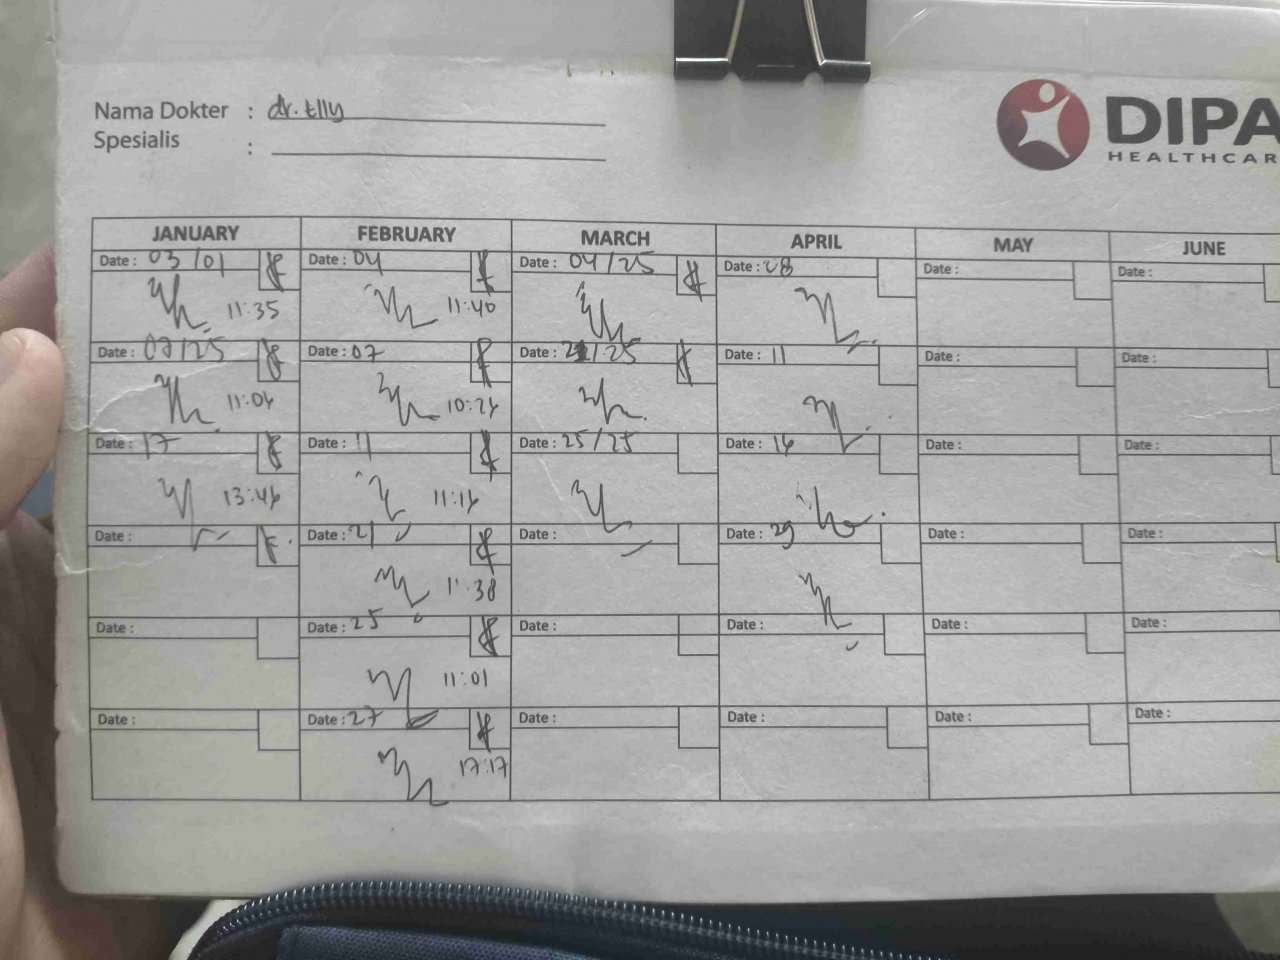 Nama Dokter : dr. Elly
Spesialis :
DIPA
HEALTHCAR
JANUARY FEBRUARY MARCH APRIL MAY JUNE
Date : 03/01 Date : 04 Date : 04/25 Date : 08 Date : Date :
11:35 11:40
Date : 07/25 Date : 07 Date : /25 Date : 11 Date : Date :
11:04 10:24
Date : 17 Date : 11 Date : 25/25 Date : 16 Date : Date :
13:46 11:16
Date : Date : 21 Date : Date : 29 Date : Date :
11:38
Date : Date : 25 Date : Date : Date : Date :
11:01
Date : Date : 27 Date : Date : Date : Date :
17:17